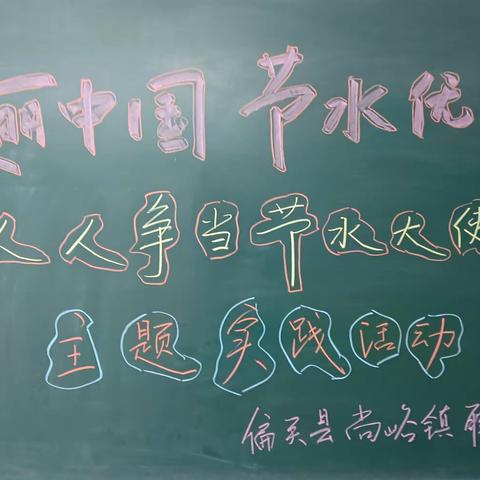 丽中国 节水优
人人争当节水大使
主题实践活动
偏关县尚峪镇联